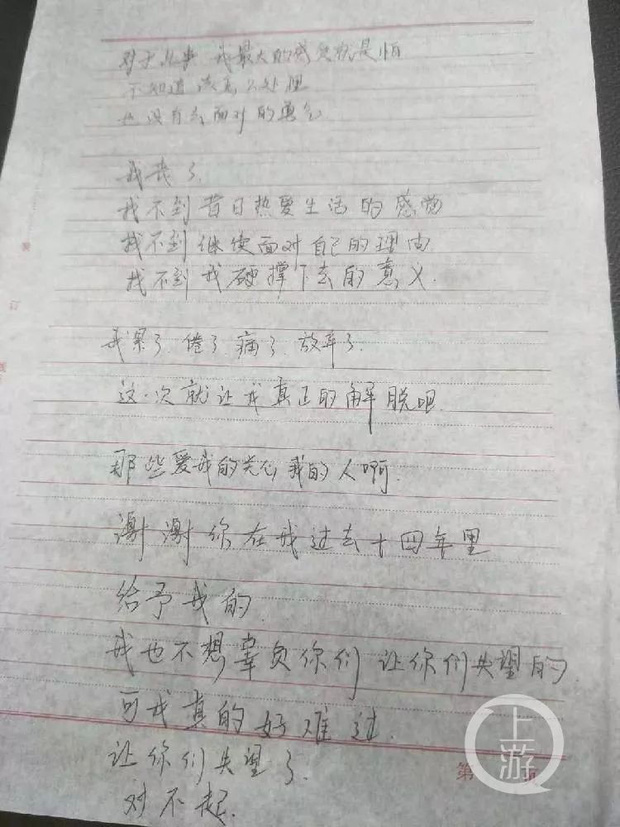 对于儿女 我最大的感觉就是怕
不知道该怎么处理
也没有去面对的勇气
我丧了
找不到昔日热爱生活的感觉
找不到继续面对自己的理由
找不到我硬撑下去的意义.
我累了.倦了.痛了.放弃了.
这次就让我真正的解脱吧
那些爱我的关心我的人啊.
谢谢你在我过去十四年里
给予我的
我也不想辜负你们 让你们失望的.
可我真的好难过.
让你们失望了.
对不起.
第 页
上游